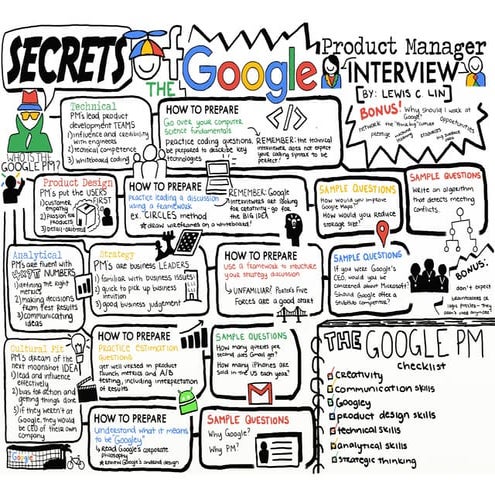 SECRETS Of
THE Google
Product Manager
INTERVIEW
BY: LEWIS C. LIN
WHO IS THE
GOOGLE PM?
Technical
PM's lead product
development TEAMS
1) influence and creativity
with engineers
2) technical competence
3) whiteboard coding
HOW TO PREPARE
Go over your computer
science fundamentals
Practice coding questions,
be prepared to describe key
technologies
REMEMBER: the technical
interviewer does not expect
your coding syntax to be
perfect!
BONUS!
Why should I work at
Google?
network
prestige
Opportunities
Product Design
PM's put the USERS
FIRST
1) customer
empathy
2) passion for
products
3) detail-oriented
HOW TO PREPARE
Practice leading a discussion
using a framework
ex. CIRCLES method
draw wireframes on a whiteboard!
REMEMBER: Google
interviewers are looking
for creativity - go for
the BIG IDEA
SAMPLE QUESTIONS
How would you improve
Google Maps?
How would you reduce
storage size?
SAMPLE QUESTIONS
Write an algorithm
that detects meeting
conflicts.
Analytical
PM's are fluent with
NUMBERS
1) defining the right
metrics
2) making decisions
from test results
3) communicating
ideas
Strategy
PM's are business LEADERS
1) familiar with business issues
2) quick to pick up business
intuition
3) good business judgement
HOW TO PREPARE
Use a framework to structure
your strategy discussion
UNFAMILIAR? Porter's Five
Forces are a good start
SAMPLE QUESTIONS
If you were Google's
CEO, would you be
concerned about Microsoft?
Should Google offer a
StubHub competitor?
BONUS:
don't expect
Cultural Fit
PM's dream of the
next moonshot IDEA
1) lead and influence
effectively
2) bias for action and
getting things done
3) if they weren't at
Google, they would
be CEO of their own
company
HOW TO PREPARE
Practice estimation
questions
get well versed in product
launch metrics and A/B
testing, including interpretation
of results
SAMPLE QUESTIONS
How many queries per
second does Gmail get?
How many iPhones are
sold in the US each year?
HOW TO PREPARE
Understand what it means
to be "Googley"
Read Google's corporate
philosophy
SAMPLE QUESTIONS
Why Google?
Why PM?
THE GOOGLE PM
checklist
creativity
communication skills
Googley
product design skills
technical skills
analytical skills
strategic thinking
Google